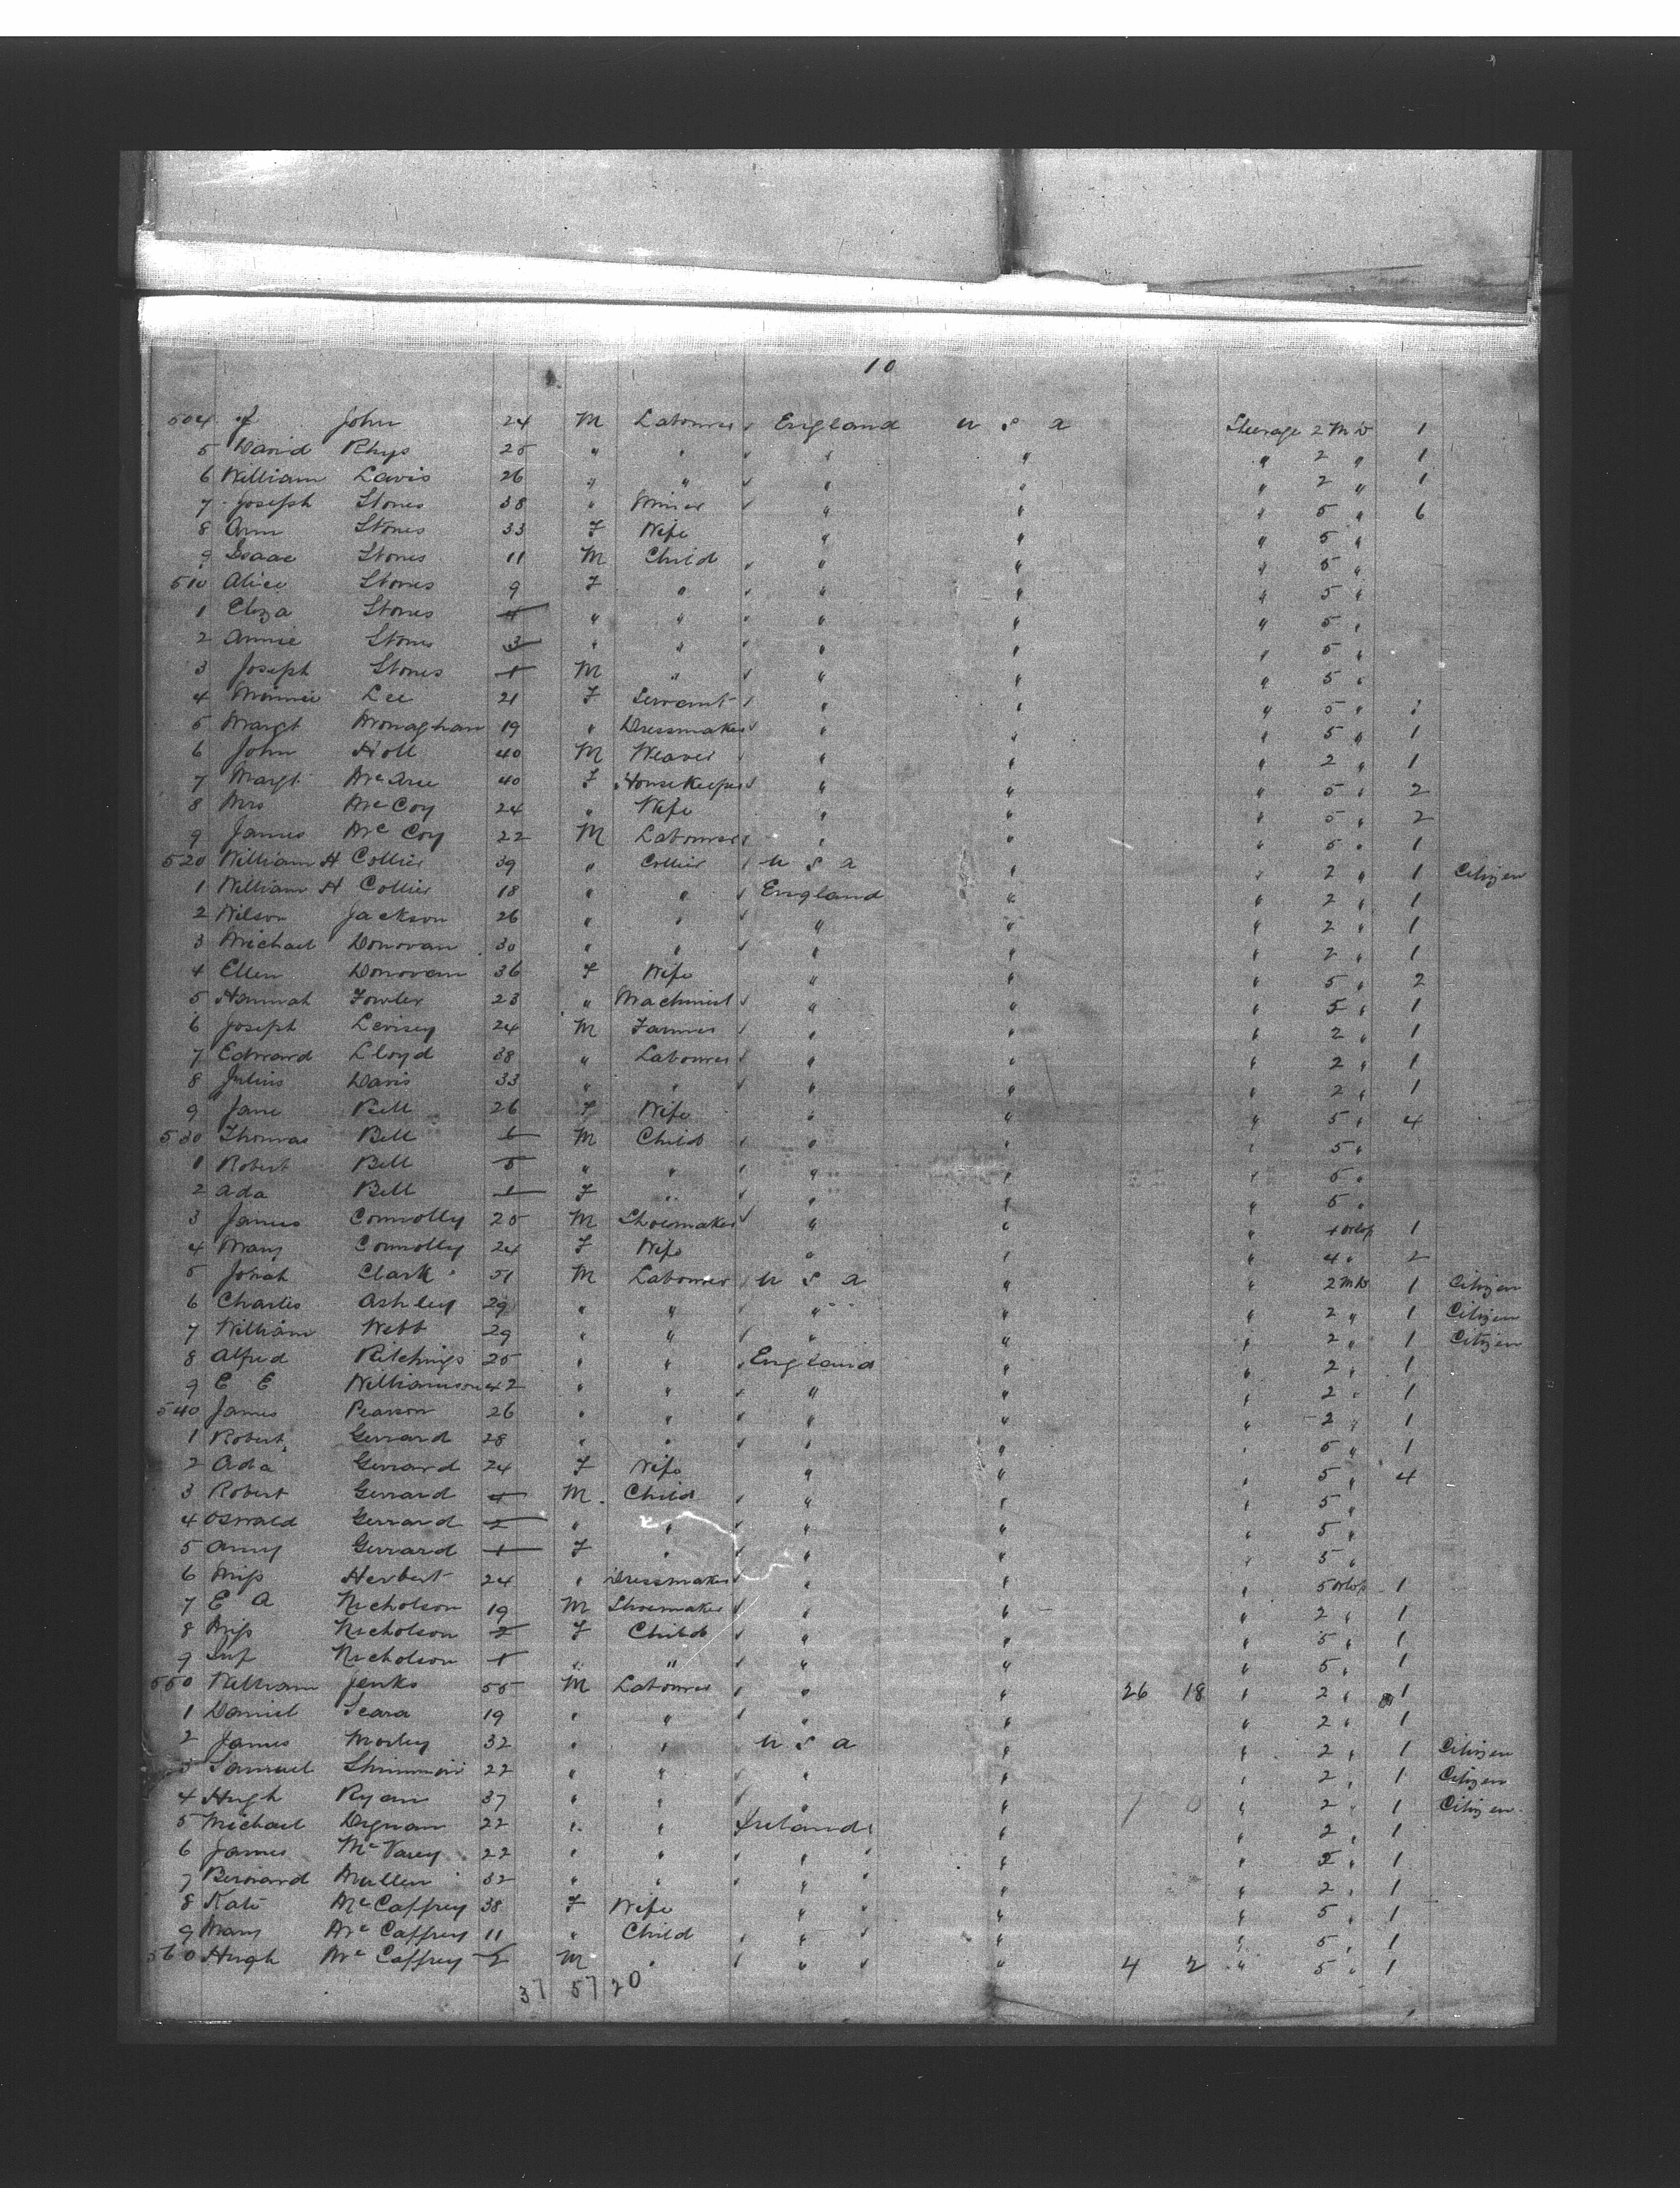 10
504 J John 24 M Labourer England U S A Steerage 2 M D 1
5 David Rhys 25 " " " " " 2 " 1
6 William Lavis 26 " " " " " 2 " 1
7 Joseph Stones 38 " Miner " " " 5 " 6
8 Ann Stones 33 F Wife " " " 5 "
9 Isaac Stones 11 M Child " " " 5 "
510 Alice Stones 9 F " " " " 5 "
1 Eliza Stones 4 " " " " " 5 "
2 Annie Stones 3 " " " " " 5 "
3 Joseph Stones 1 M " " " " 5 "
4 Minnie Lee 21 F Servant " " " 5 " 1
5 Margt Monaghan 19 " Dressmaker " " " 5 " 1
6 John Holl 40 M Weaver " " " 2 " 1
7 Margt McAree 40 F Housekeeper " " " 5 " 2
8 Mrs McCoy 24 " Wife " " " 5 " 2
9 James McCoy 22 M Labourer " " " 5 " 1
520 William H Collier 39 " Collier U S A " " 2 " 1 Citizen
1 William H Collier 18 " " England " " 2 " 1
2 Wilson Jackson 26 " " " " " 2 " 1
3 Michael Donovan 30 " " " " " 2 " 1
4 Ellen Donovan 36 F Wife " " " 5 " 2
5 Hannah Fowler 23 " Machinist " " " 5 " 1
6 Joseph Levisey 24 M Farmer " " " 2 " 1
7 Edward Lloyd 38 " Labourer " " " 2 " 1
8 Julius Davis 33 " " " " " 2 " 1
9 Jane Bell 26 F Wife " " " 5 " 4
530 Thomas Bell 6 M Child " " " 5 "
1 Robert Bell 5 " " " " " 5 "
2 Ada Bell 1 F " " " " 5 "
3 James Connolly 25 M Shoemaker " " " 4 Orlop 1
4 Mary Connolly 24 F Wife " " " 4 " 2
5 Josiah Clark 51 M Labourer U S A " " 2 M D 1 Citizen
6 Charles Ashley 29 " " " " " 2 " 1 Citizen
7 William Webb 29 " " " " " 2 " 1 Citizen
8 Alfred Ritchings 25 " " England " " 2 " 1
9 E E Williamson 42 " " " " " 2 " 1
540 James Pearson 26 " " " " " 2 " 1
1 Robert Gerrard 28 " " " " " 5 " 1
2 Ada Gerrard 24 F Wife " " " 5 " 4
3 Robert Gerrard 4 M Child " " " 5 "
4 Oswald Gerrard 2 " " " " " 5 "
5 Amy Gerrard 1 F " " " " 5 "
6 Miss Herbert 24 " Dressmaker " " " 5 Orlop 1
7 E A Nicholson 19 M Shoemaker " " " 2 " 1
8 Miss Nicholson 2 F Child " " " 5 " 1
9 Inf Nicholson 1 " " " " " 5 " 1
550 William Jenks 55 M Labourer " " 26 18 " 2 " 1
1 Daniel Seara 19 " " " " " 2 " 1
2 James Morley 32 " " U S A " " 2 " 1 Citizen
3 Samuel 22 " " " " " 2 " 1 Citizen
4 Hugh Ryan 37 " " " " 1 0 " 2 " 1 Citizen
5 Michael Dignan 22 " " Ireland " " 2 " 1
6 James McVarey 22 " " " " " 2 " 1
7 Bernard Mullen 32 " " " " " 2 " 1
8 Kate McCaffrey 38 F Wife " " " 5 " 1
9 Mary McCaffrey 11 " Child " " " 5 " 1
560 Hugh McCaffrey M " " " 4 2 " 5 " 1
37 57 20